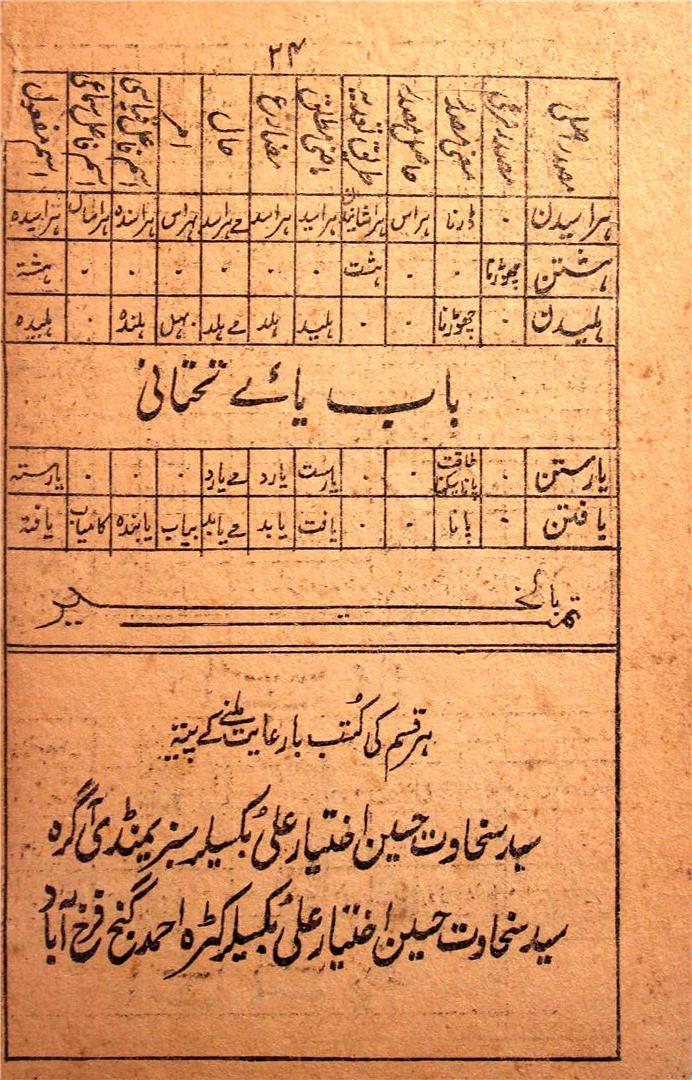 ۲۴
مصدر اصلی مصدر فرعی معنی مصدر حاصل مصدر طریق تعدیہ ماضی مطلق مضارع حال امر اسم فاعل قیاسی اسم فاعل سماعی اسم مفعول
ہراسیدن ۰ ڈرنا ہراس ہراسانیدن ہراسید ہراسد مے ہراسد بہراس ہراسندہ ہراسان ہراسیدہ
ہشتن چھوڑنا ۰ ۰ ہشت ۰ ۰ ۰ ۰ ۰ ۰ ہشتہ
ہلیدن ۰ چھوڑنا ۰ ۰ ہلید ہلد مے ہلد بہل ہلندہ ۰ ہلیدہ
باب یائے تحتانی
یارستن ۰ طاقت پانا سکنا ۰ ۰ یارست یارد مے یارد ۰ ۰ ۰ یارستہ
یافتن ۰ پانا ۰ ۰ یافت یابد مے یابد بیاب یابندہ کامیاب یافتہ
تمت بالخیر
ہر قسم کی کُتب بارعایت ملنے کے پتے
سید سخاوت حسین اختیار علی بکسیلر سبزیمنڈی آگرہ
سید سخاوت حسین اختیار علی بکسیلر کٹرہ احمد گنج فرخ آباد